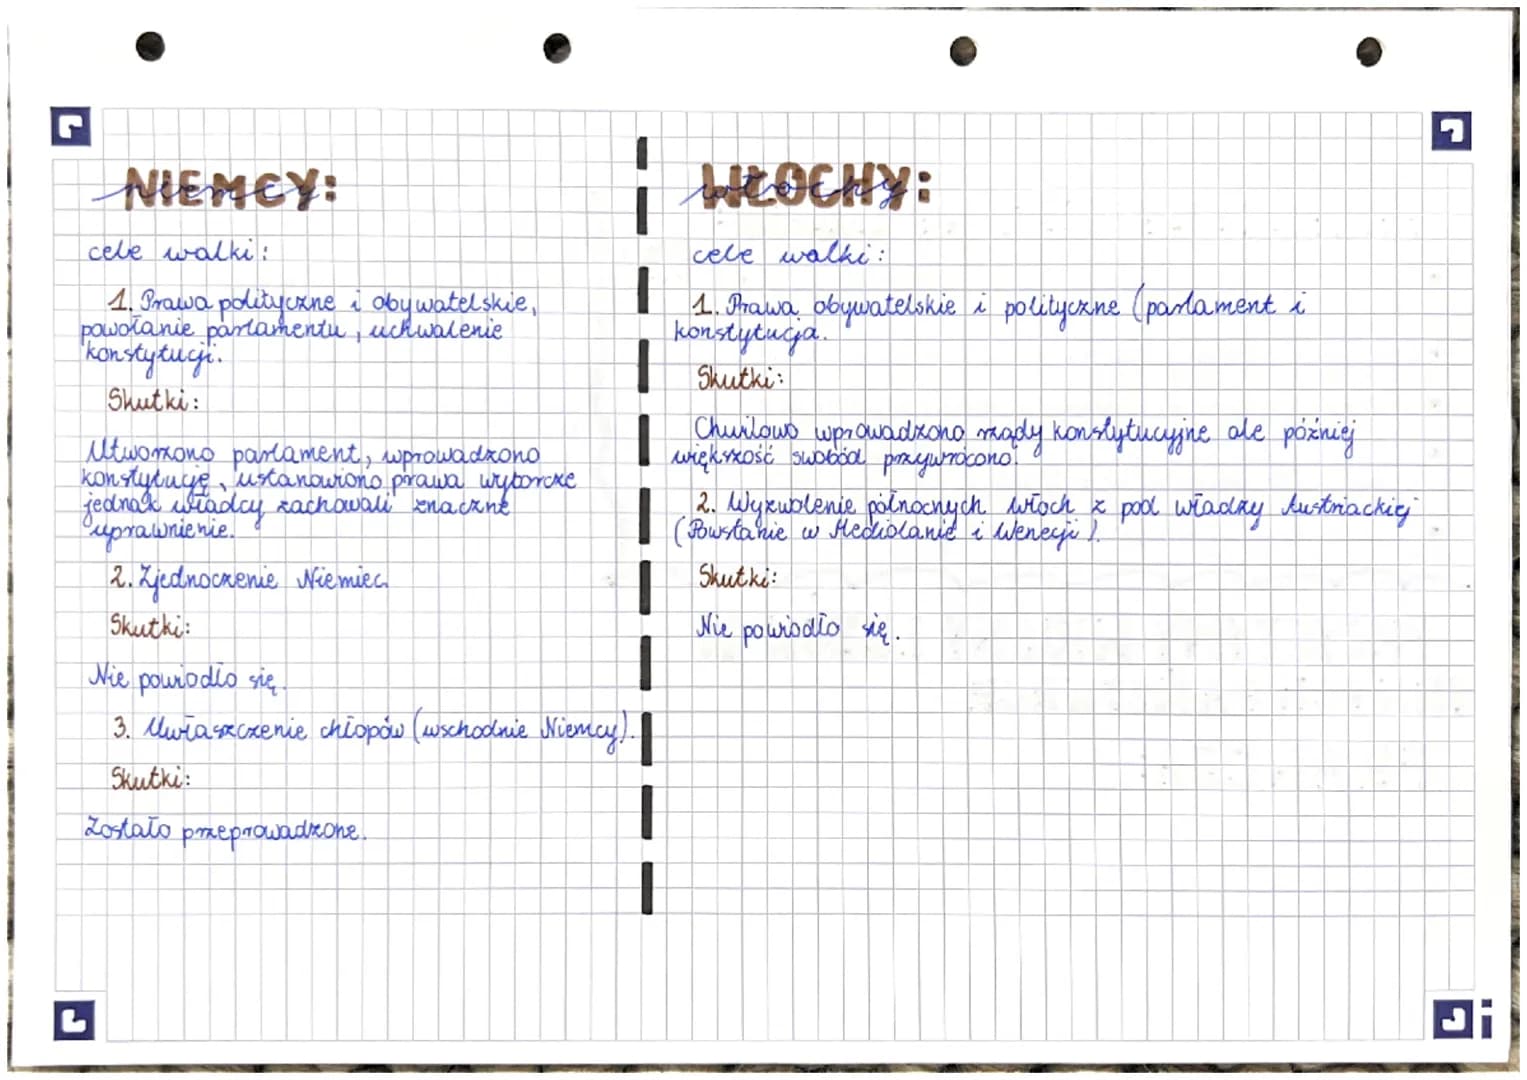 NIEMCY:
niemcy
cele walki:
1. Prawa polityczne i obywatelskie,
powołanie parlamentu, uchwalenie
konstytucji.
Skutki:
Utworzono parlament, wprowadzono
konstytucję, ustanowiono prawa wyborcze
jednak władcy zachowali znaczne
uprawnienie.
2. Zjednoczenie Niemiec.
Skutki:
Nie powiodło się.
3. Uwłaszczenie chłopów (wschodnie Niemcy).
Skutki:
Zostało przeprowadzone.
WŁOCHY:
włochy
cele walki:
1. Prawa obywatelskie i polityczne (parlament i
konstytucja.
Skutki:
Chwilowo wprowadzono rządy konstytucyjne ale później
większość swobód przywrócono.
2. Wyzwolenie północnych Włoch z pod władzy Austriackiej
(Powstanie w Mediolanie i Wenecji).
Skutki:
Nie powiodło się.